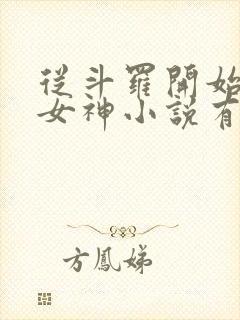 從斗羅開始
女神小說有
方鳳娣